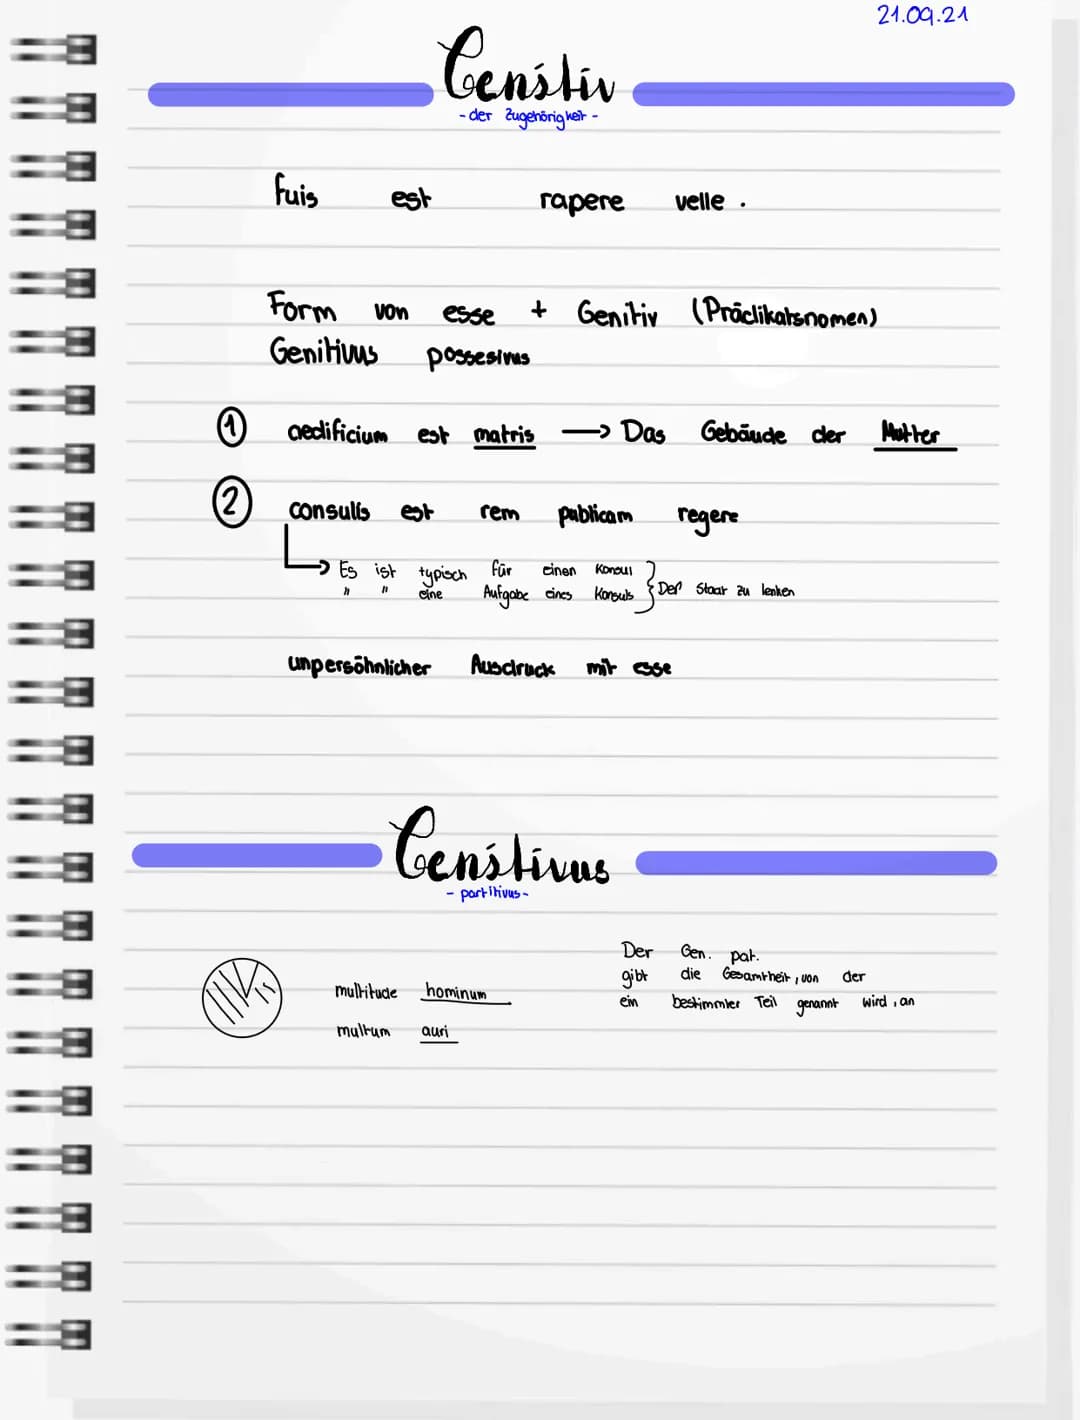 21.09.21
Genitiv
- der Zugehörigkeit -
fuis est rapere velle .
Form von esse + Genitiv (Prädikatsnomen)
Genitivus possesivus
① aedificium est matris → Das Gebäude der Mutter
② consulis est rem publicam regere
↳ Es ist typisch für einen Konsul
" " eine Aufgabe eines Konsuls } Den Staat zu lenken
unpersöhnlicher Ausdruck mit esse
Genitivus
- partitivus -
Der Gen. pat.
gibt die Gesamtheit, von der
ein bestimmter Teil genannt wird, an
multitude hominum
multum auri